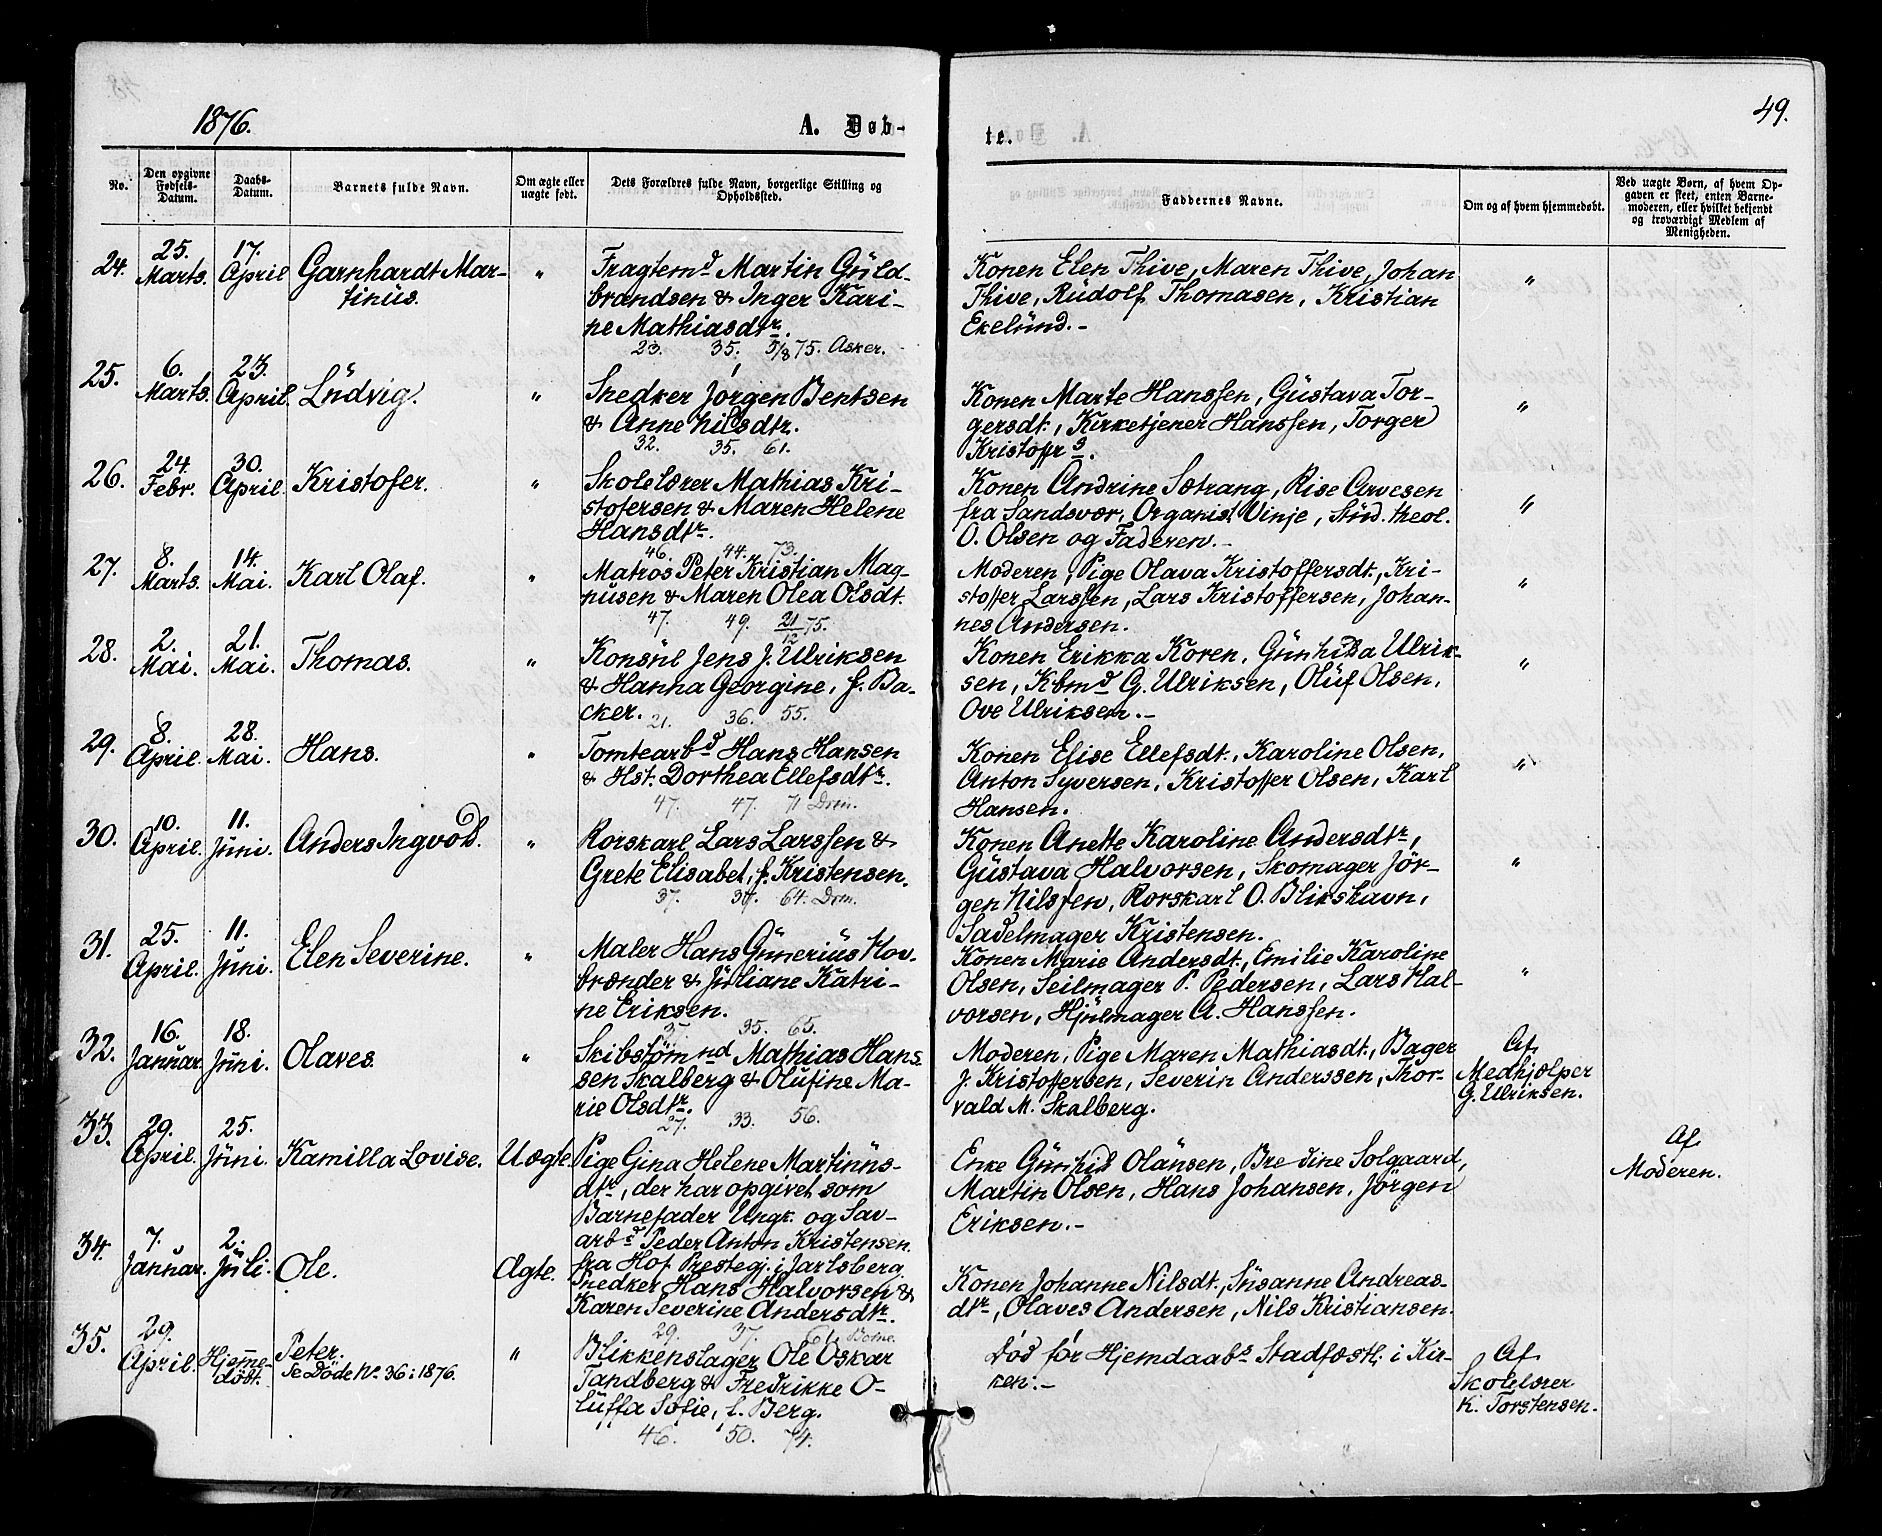 1876.
A. Døb-
te.
49.
No.
Den opgivne Fødsels-Datum.
Daabs-Datum.
Barnets fulde Navn.
Om ægte eller uægte født.
Dets Forældres fulde Navn, borgerlige Stilling og Opholdssted.
Faddernes Navne.
Om og af hvem hjemmedøbt.
Ved uægte Børn, af hvem Op-
gaven er skeet, enten Barne-
moderen, eller hvilket bekjendt
og troværdigt Medlem af
Menigheden.
24. 25. Marts. 17. April Garnhardt Mar-
tinus.
"
Fragtemd Martin Guld-
brandsen & Inger Kari-
ne Mathiasdtr.
23. 35. 5/8 75. Asker.
Konen Elen Thive, Maren Thive, Johan
Thive, Rudolf Thomasen, Kristian
Ekelund.-
"
25. 6. Marts. 23. April. Ludvig.
"
Snedker Jørgen Bentsen
& Anne Nilsdtr.
32. 35. 61.
Konen Marte Hanssen, Gustava Tor-
gersdt., Kirketjener Hanssen, Torger
Kristoffrs.
"
26. 24. Febr. 30. April. Kristofer.
"
Skolelærer Mathias Kri-
stofersen & Maren Helene
Hansdtr.
46. 44. 73.
Konen Andrine Sætrang, Rise Arvesen
fra Sandsvær, Organist Vinje, Stud. theol.
O. Olsen og Faderen.-
"
27. 8. Marts. 14. Mai. Karl Olaf.
"
Matros Peter Kristian Mag-
nusen & Maren Olea Olsdt.
47. 49. 21/12 75.
Moderen, Pige Olava Kristoffersdt., Kri-
stoffer Larssen, Lars Kristoffersen, Johan-
nes Andersen.
"
28. 2. Mai. 21. Mai. Thomas.
"
Konsul Jens J. Ulriksen
& Hanna Georgine, f. Ba-
cker.
21. 36. 55.
Konen Erikka Koren, Gunhilda Ulrik-
sen, Kbmd G. Ulriksen, Oluf Olsen,
Ove Ulriksen.-
"
29. 8. April. 28. Mai. Hans.
"
Tomtearbd Hans Hansen
& Hst. Dorthea Ellefsdtr.
47. 47. 71 Drm.
Konen Elise Ellefsdt., Karoline Olsen,
Anton Syversen, Kristoffer Olsen, Karl
Hansen.
"
30. 10. April. 11. Juni. Anders Ingvold.
"
Rorskarl Lars Larssen &
Grete Elisabet, f. Kristensen.
37. 37. 64. Drm.
Konen Anette Karoline Andersdtr,
Gustava Halvorsen, Skomager Jør-
gen Nilssen, Rorskarl O. Blikshavn,
Sadelmager Kristensen.
"
31. 25. April. 11. Juni. Elen Severine.
"
Maler Hans Gunerius Hov-
brænder & Juliane Katri-
ne Eriksen.
35. 65.
Konen Marie Andersdt., Emilie Karoline
Olsen, Seilmager P. Pedersen, Lars Hal-
vorsen, Hjulmager A. Hanssen.
"
32. 16. Januar. 18. Juni. Olaves.
"
Skibstømnd Mathias Hans-
sen Skalberg & Olufine Ma-
rie Olsdtr.
27. 33. 56.
Moderen, Pige Maren Mathiasdt., Bager
J. Kristoffersen, Severin Anderssen, Thor-
vald M. Skalberg.
Af
Medhjælper
G. Ulriksen.
33. 29. April. 25. Juni. Kamilla Lovise.
Uægte.
Pige Gina Helene Martinus-
dtr, der har opgivet som
Barnefader Ungk. og Sav-
arbd Peder Anton Kristensen
fra Hof Prestegj. i Jarlsberg.
Enke Gunhild Olausen, Bredine Solgaard,
Martin Olsen, Hans Johansen, Jørgen
Eriksen.-
Af
Moderen.
34. 7. Januar. 2. Juli. Ole.
Ægte.
Snedker Hans Halvorsen &
Karen Severine Andersdtr.
29. 37. 61.
Konen Johanne Nilsdt., Susanne Andreas-
dtr, Olaves Andersen, Nils Kristiansen.
35. 29. April. Hjemme-
døbt. Peter.
Se Døde No 36 i 1876.
"
Blikkenslager Ole Oskar
Tandberg & Fredrikke O-
luffa Sofie, f. Berg.
46. 50. 74.
Død før Hjemdaabs Stadfæst. i Kir-
ken.-
Af
Skolelærer
K. Torstensen.